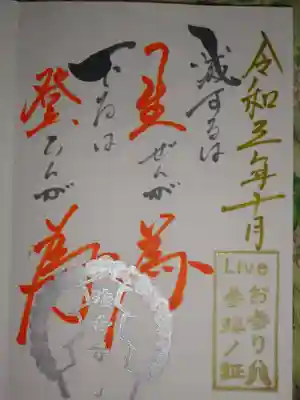 令和三年十月
滅するは
生ぜんが為
下るは
登らんが為
Live
お参り
参拝ノ証